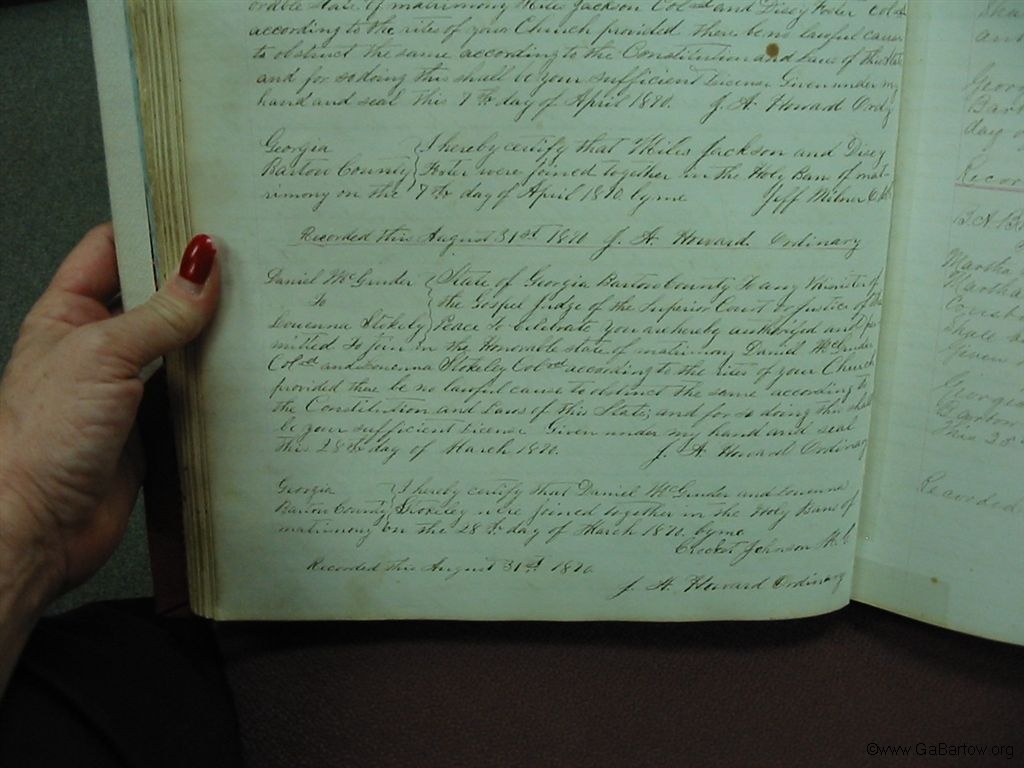 orable State of matrimony Miles Jackson Cold and Disey Foster cold
according to the rites of your Church provided there be no lawful cause
to obstruct the same according to the Constitution and Laws of this State
and for so doing this shall be your sufficient License Given under my
hand and seal this 7th day of April 1870. J. A. Howard Ordy
Georgia I hereby certify that Miles Jackson and Disey
Bartow County Foster were joined together in the Holy Bans of mat-
rimony on the 7th day of April 1870. by me Jeff Milner
Recorded this August 31st 1870 J. A. Howard. Ordinary
Daniel McGruder State of Georgia Bartow County To any Minister of
To the Gospel Judge of the Superior Court or Justice of the
Louvenna Stokely Peace to Celebrate You are hereby authorized and per
mitted to join in the Honorable state of matrimony Daniel McGruder
Cold and Louvenna Stokeley Cold according to the rites of your Church
provided there be no lawful cause to obstruct the same according to
the Constitution and Laws of this State, and for so doing this shall
be your sufficient License Given under my hand and seal
this 28th day of March 1870. J. A. Howard Ordinary
Georgia I hereby certify that Daniel McGruder and Louvenna
Bartow County Stokeley were joined together in the Holy Bans of
matrimony on the 28th day of March 1870. by me
Crocket Johnson M. G.
Recorded this August 31st 1870
J. A. Howard Ordinary
Geor
Bart
day o
Recor
Martha
Martha
Shall
Given
Georgia
Bartow
this 28
Recorded
©www.GaBartow.org